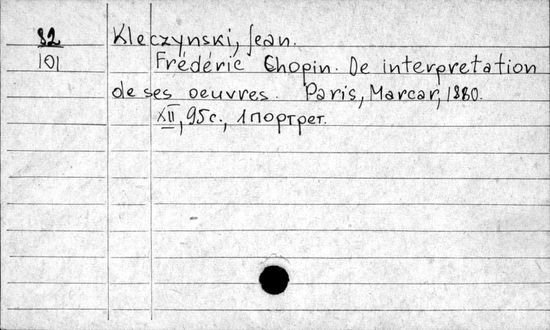 82 Kleczynski, Jean.
101 Frédéric Chopin. De interpretation
de ses oeuvres. Paris, Marcar, 1880.
XII, 95 с., 1 портрет.